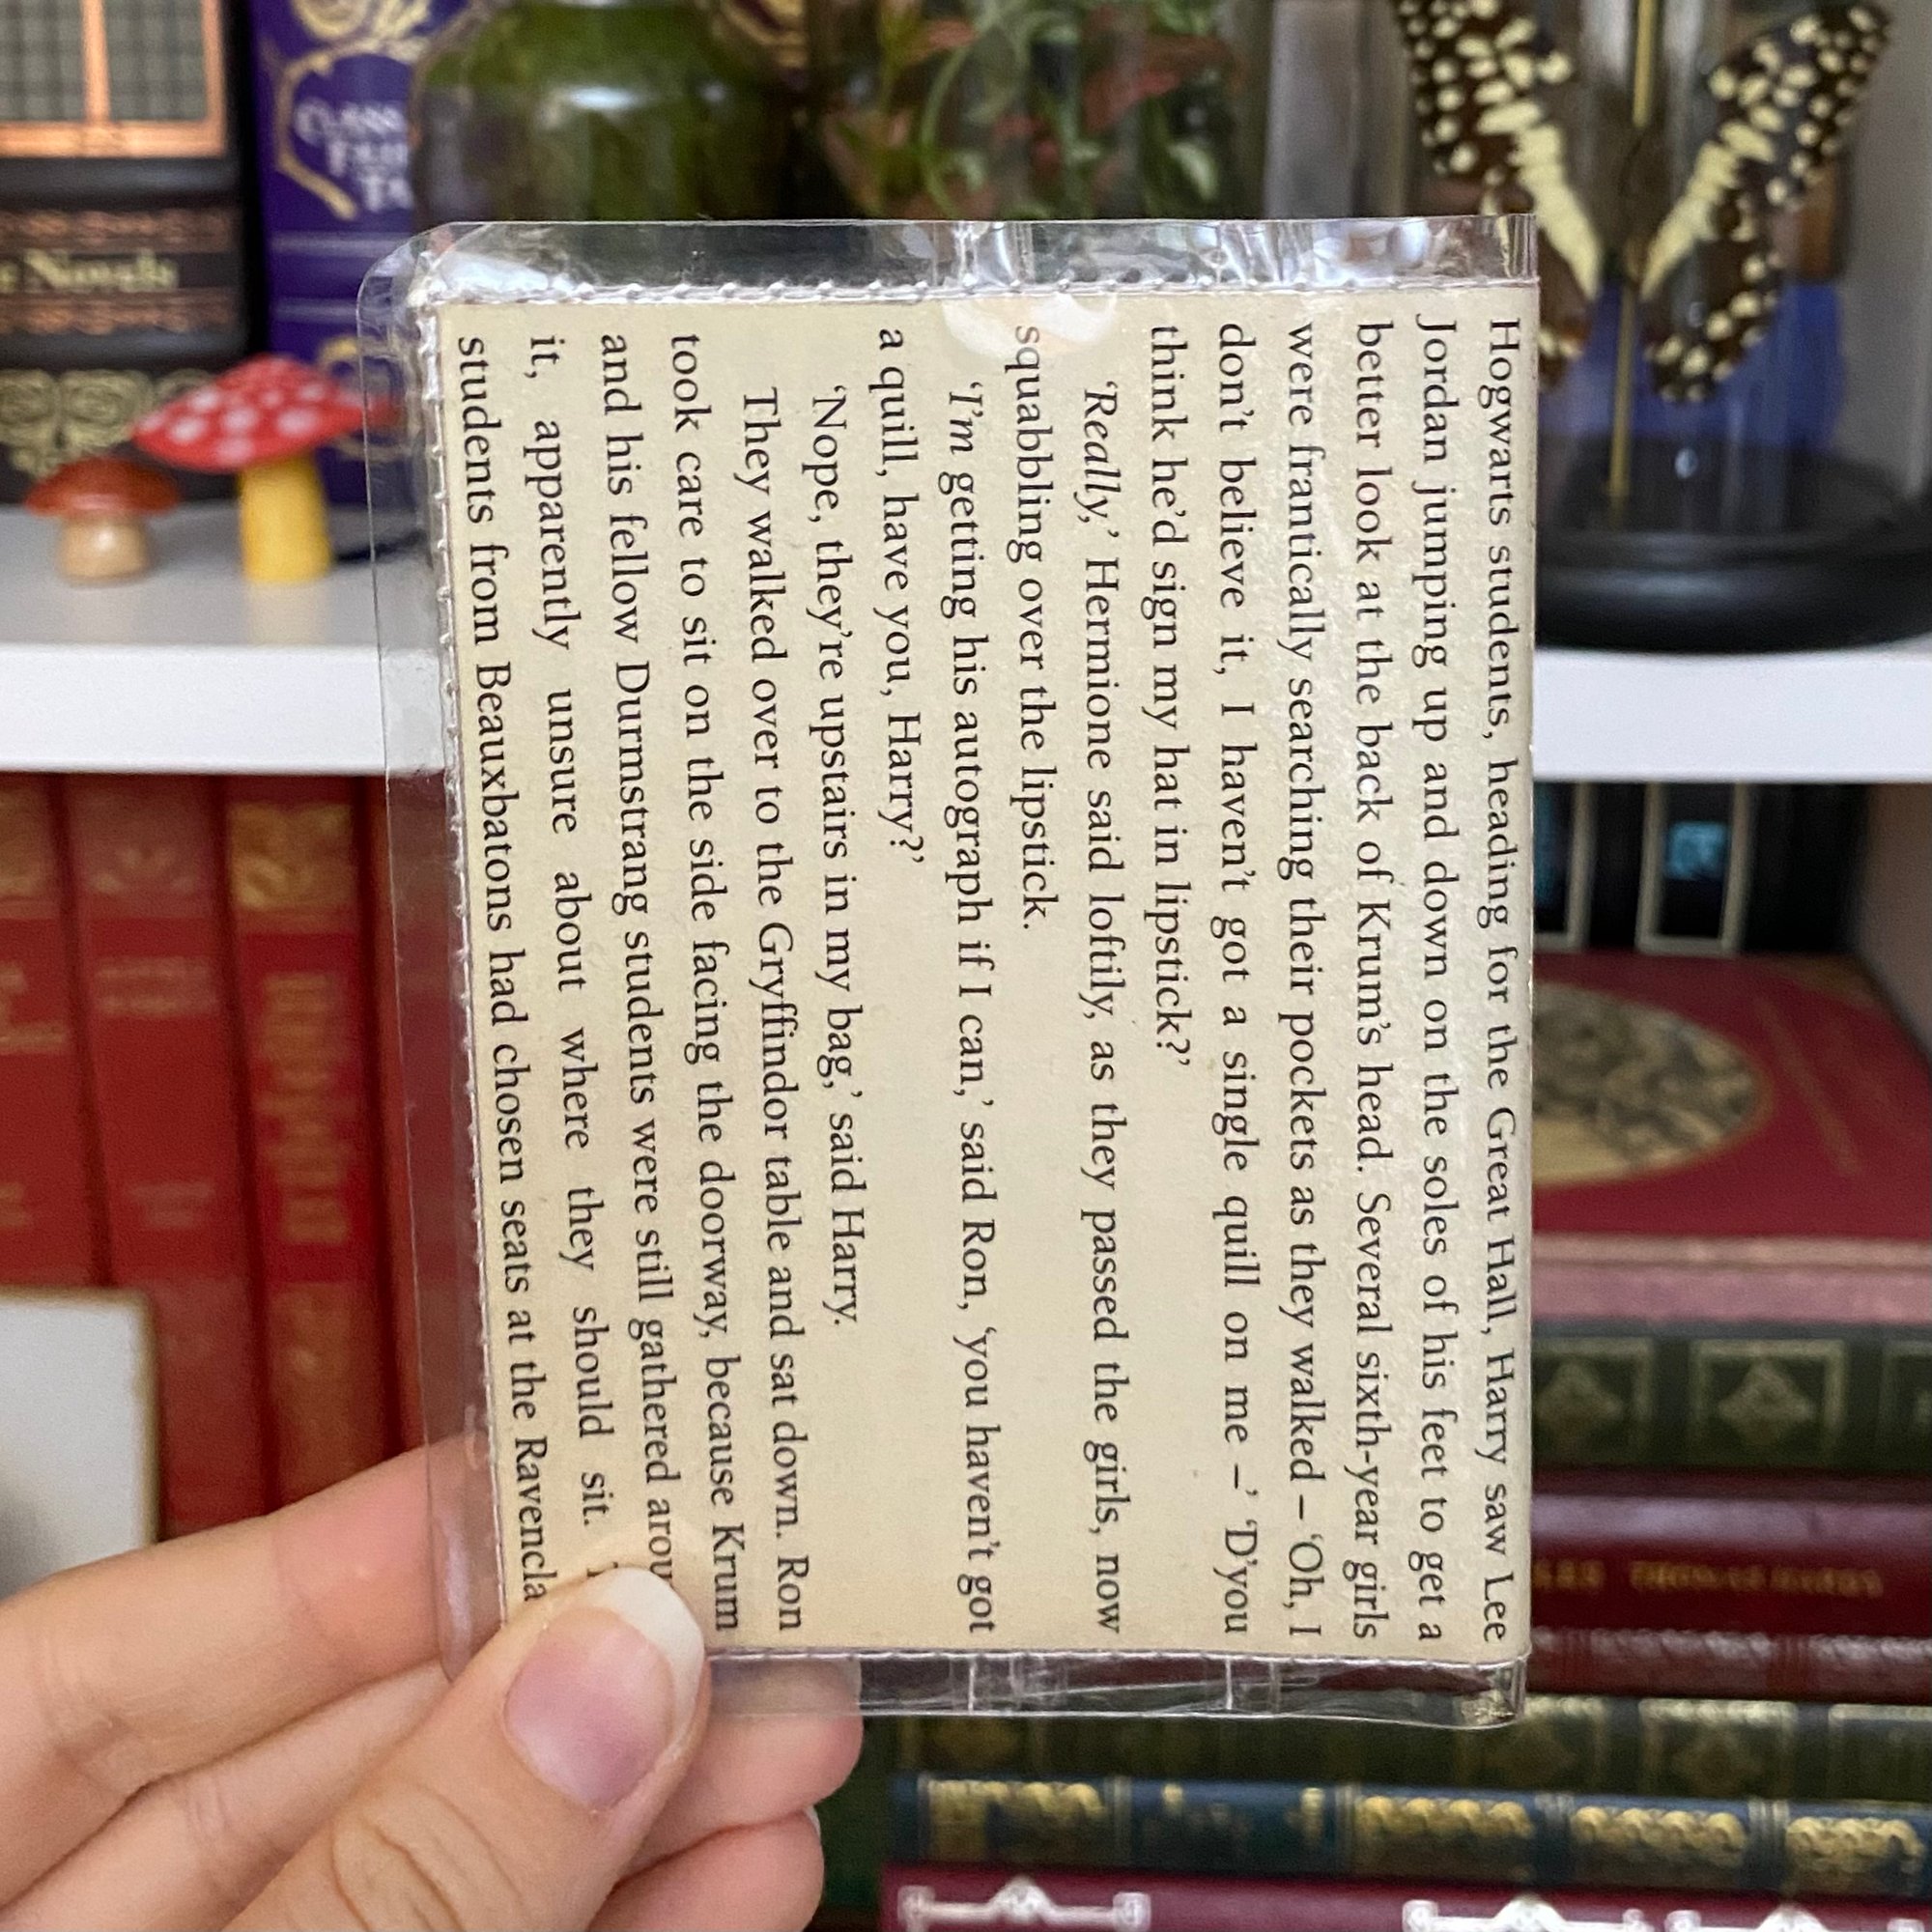 Hogwarts students, heading for the Great Hall, Harry saw Lee
Jordan jumping up and down on the soles of his feet to get a
better look at the back of Krum's head. Several sixth-year girls
were frantically searching their pockets as they walked – 'Oh, I
don't believe it, I haven't got a single quill on me –' 'D'you
think he'd sign my hat in lipstick?'
'Really,' Hermione said loftily, as they passed the girls, now
squabbling over the lipstick.
'I'm getting his autograph if I can,' said Ron, 'you haven't got
a quill, have you, Harry?'
'Nope, they're upstairs in my bag,' said Harry.
They walked over to the Gryffindor table and sat down. Ron
took care to sit on the side facing the doorway, because Krum
and his fellow Durmstrang students were still gathered arou
it, apparently unsure about where they should sit.
students from Beauxbatons had chosen seats at the Ravencla
Novels
CLASS
FAI
TA
THOMAS HARDY